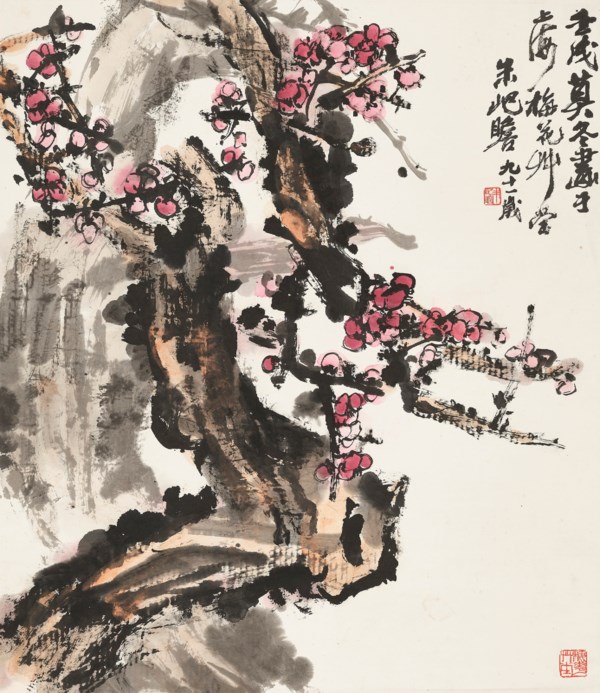 壬戌莫冬畫于
上海梅花艸堂
朱屺瞻九十一歲